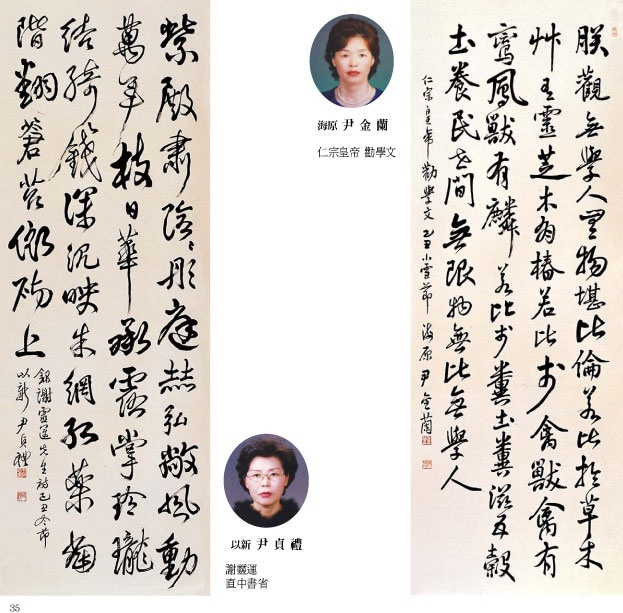 朕觀無學人無物堪比倫若比於草木
艸有靈芝木有椿若比於禽獸禽有
鸞鳳獸有麟若比於糞土糞滋五穀
土養民世間無限物無比無學人
仁宗皇帝勸學文 己丑小雪節 海原 尹金蘭
海原 尹金蘭
仁宗皇帝 勸學文
紫殿肅陰陰彤庭赫弘敞風動
萬年枝日華承露掌玲瓏
結綺錢深沉映朱網紅藥當
階翻蒼苔依砌上
錄謝靈運先生詩己丑冬節
以新 尹貞禮
以新 尹貞禮
謝靈運
直中書省
35